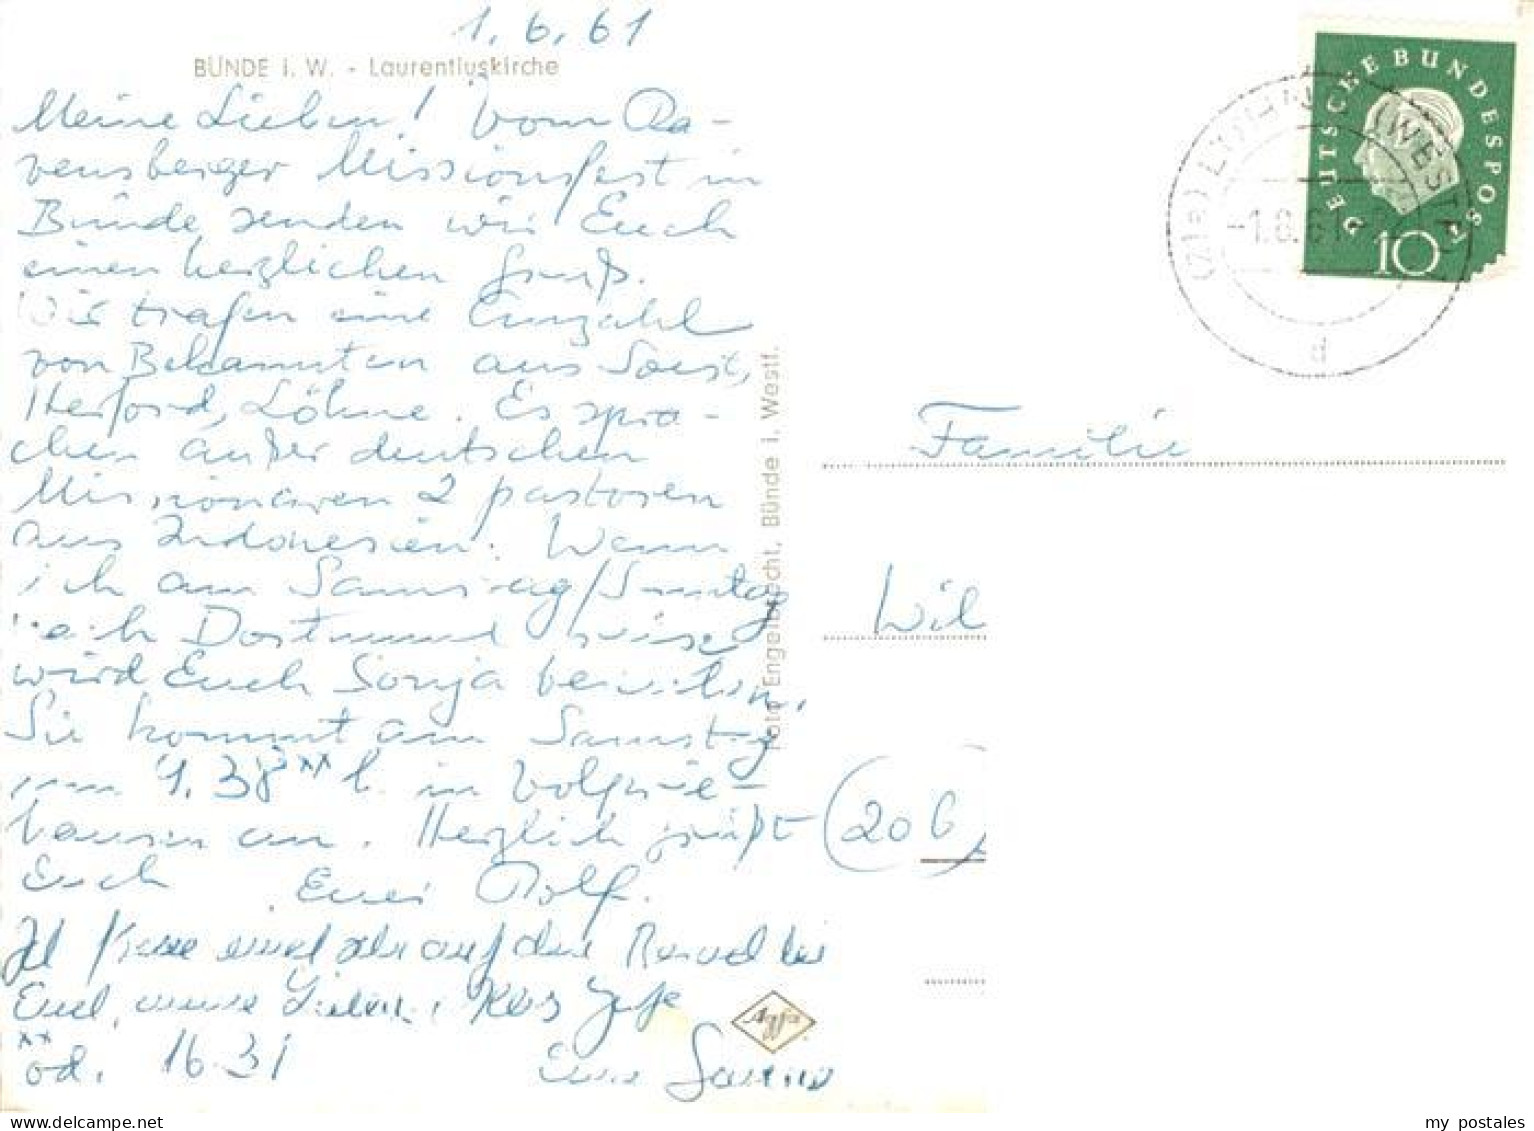 1.6.61
BÜNDE i. W. - Laurentiuskirche
Meine Lieben! Vom Ra-
vensberger Missionsfest in
Bünde senden wir Euch
einen herzlichen Gruß.
Wir trafen eine Unzahl
von Bekannten aus Soest,
Herford, Löhne. Es spra-
chen außer deutschen
Missionaren 2 pastoren
aus Indonesien. Wenn
ich am Samstag/Sonntag
nach Dortmund reise
wird Euch Sonja
Sie kommt am Samstag
um 9.38 xx h. in
an. Herzlich grüßt
Euch Euer Rolf.
Ich freue mich sehr auf den Besuch bei
Euch, meine Lieben.
xx
od. 16.31
Eure
Foto Engelbrecht, Bünde i. Westf.
Agfa
DEUTSCHE BUNDESPOST
10
(21a) (WESTF)
-1.6.61
d
Familie
Wil
(20 b)
my postales